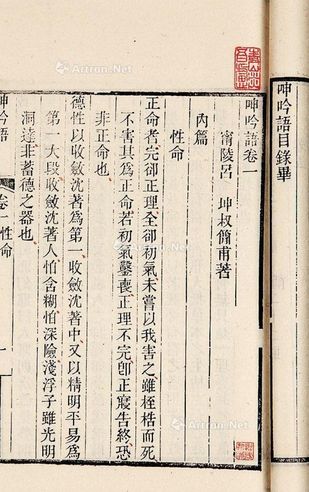 呻吟語目錄畢
呻吟語卷一
甯陵呂 坤叔簡甫著
內篇
性命
正命者完卻正理全卻初氣未嘗以我害之雖桎梏而死
不害其爲正命若初氣鑿喪正理不完卽正寢告終恐
非正命也
德性以收斂沈著爲第一收斂沈著中又以精明平易爲
第一大段收斂沈著人怕含糊怕深險淺浮子雖光明
洞達非蓄德之器也
呻吟語 卷一 性命 一
Artron.Net